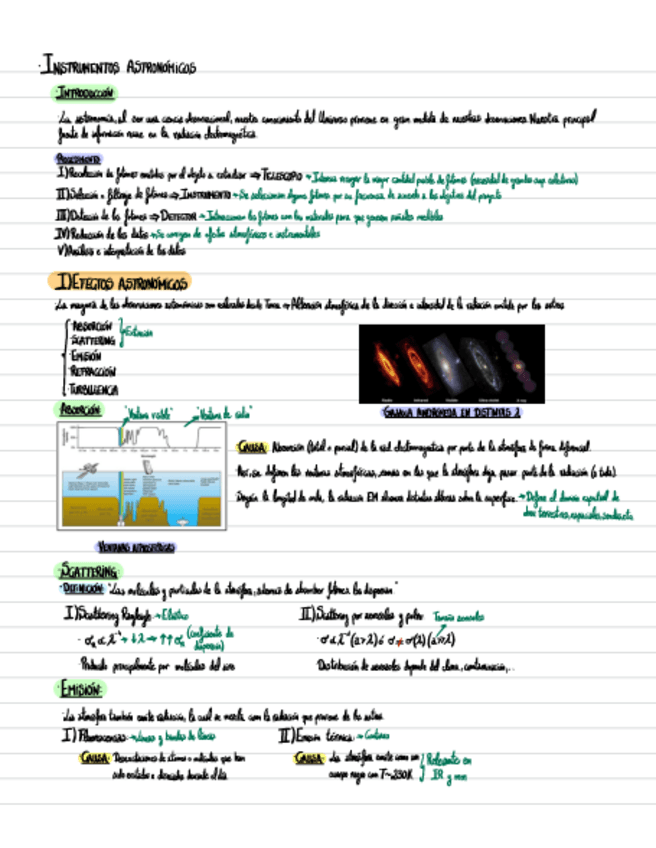 · INSTRUMENTOS ASTRONÓMICOS
· INTRODUCCIÓN
· La astronomía, al ser una ciencia observacional, nuestro conocimiento del Universo proviene en gran medida de nuestras observaciones. Nuestra principal
fuente de información recae en la radiación electromagnética.
PROCEDIMIENTO
I) Recolección de fotones emitidos por el objeto a estudiar ⇒ TELESCOPIO → Interesa recoger la mayor cantidad posible de fotones (necesidad de grandes sup. colectoras)
II) Selección o filtraje de fotones ⇒ INSTRUMENTO → Se seleccionan algunos fotones por su frecuencia de acuerdo a los objetivos del proyecto
III) Detección de los fotones ⇒ DETECTOR → Interaccionan los fotones con los materiales para que generen señales medibles
IV) Reducción de los datos → Se corrigen de efectos atmosféricos e instrumentales
V) Análisis e interpretación de los datos
I) EFECTOS ASTRONÓMICOS
· La mayoría de las observaciones astronómicas son realizadas desde Tierra → Alteración atmosférica de la dirección e intensidad de la radiación emitida por los astros
· ABSORCIÓN
· SCATTERING
Extinción
· EMISIÓN
· REFRACCIÓN
· TURBULENCIA
GALAXIA ANDRÓMEDA EN DISTINTAS λ
ABSORCIÓN "Ventana visible" "Ventana de radio"
· CAUSA: Absorción (total o parcial) de la rad. electromagnética por parte de la atmósfera de forma diferencial.
· Así, se definen las ventanas atmosféricas, zonas en las que la atmósfera deja pasar parte de la radiación (o toda).
· Según la longitud de onda, la radiación EM alcanza distintas alturas sobre la superficie. → Define el dominio espectral de
obs. terrestres, espaciales, sondas, etc.
VENTANAS ATMOSFÉRICAS
· SCATTERING:
· DEFINICIÓN: "Las moléculas y partículas de la atmósfera, además de absorber fotones, los dispersan."
I) Scattering Rayleigh → Elástico
II) Scattering por aerosoles y polvo Tamaño aerosoles
· σ_R ∝ λ⁻⁴ → ↓λ ⇒ ↑↑σ_R (coeficiente de
dispersión)
· σ ∝ λ⁻¹ (a>λ) ó σ ≠ σ(λ) (a≫λ)
· Producido principalmente por moléculas del aire
· Distribución de aerosoles depende del clima, contaminación,...
· EMISIÓN:
· La atmósfera también emite radiación, la cual se mezcla con la radiación que proviene de los astros.
I) Fluorescencia → Líneas y bandas de líneas
II) Emisión térmica → Continuo
· CAUSA: Desexcitaciones de átomos o moléculas que han
sido excitados o disociados durante el día.
· CAUSA: La atmósfera emite como un
cuerpo negro con T~230K
Relevante en
IR y mm